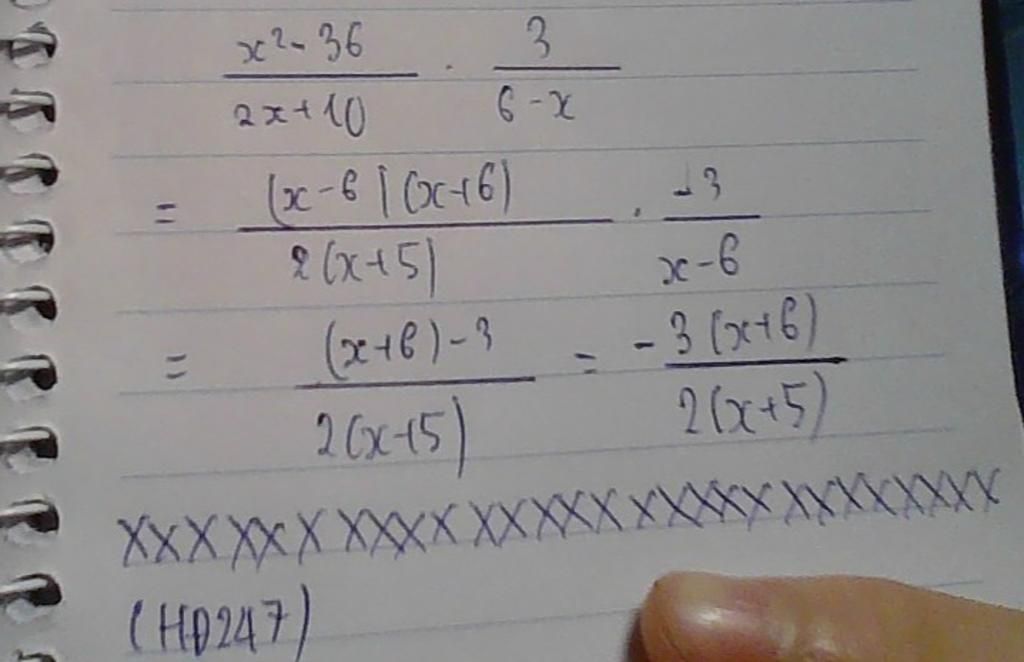 x²-36 / 2x+10 · 3 / 6-x
= (x-6)(x+6) / 2(x+5) · -3 / x-6
= (x+6)-3 / 2(x+5) = -3(x+6) / 2(x+5)
XXXXXXXXXXXXXXXXXXXXXXXXXXX
(HD247)